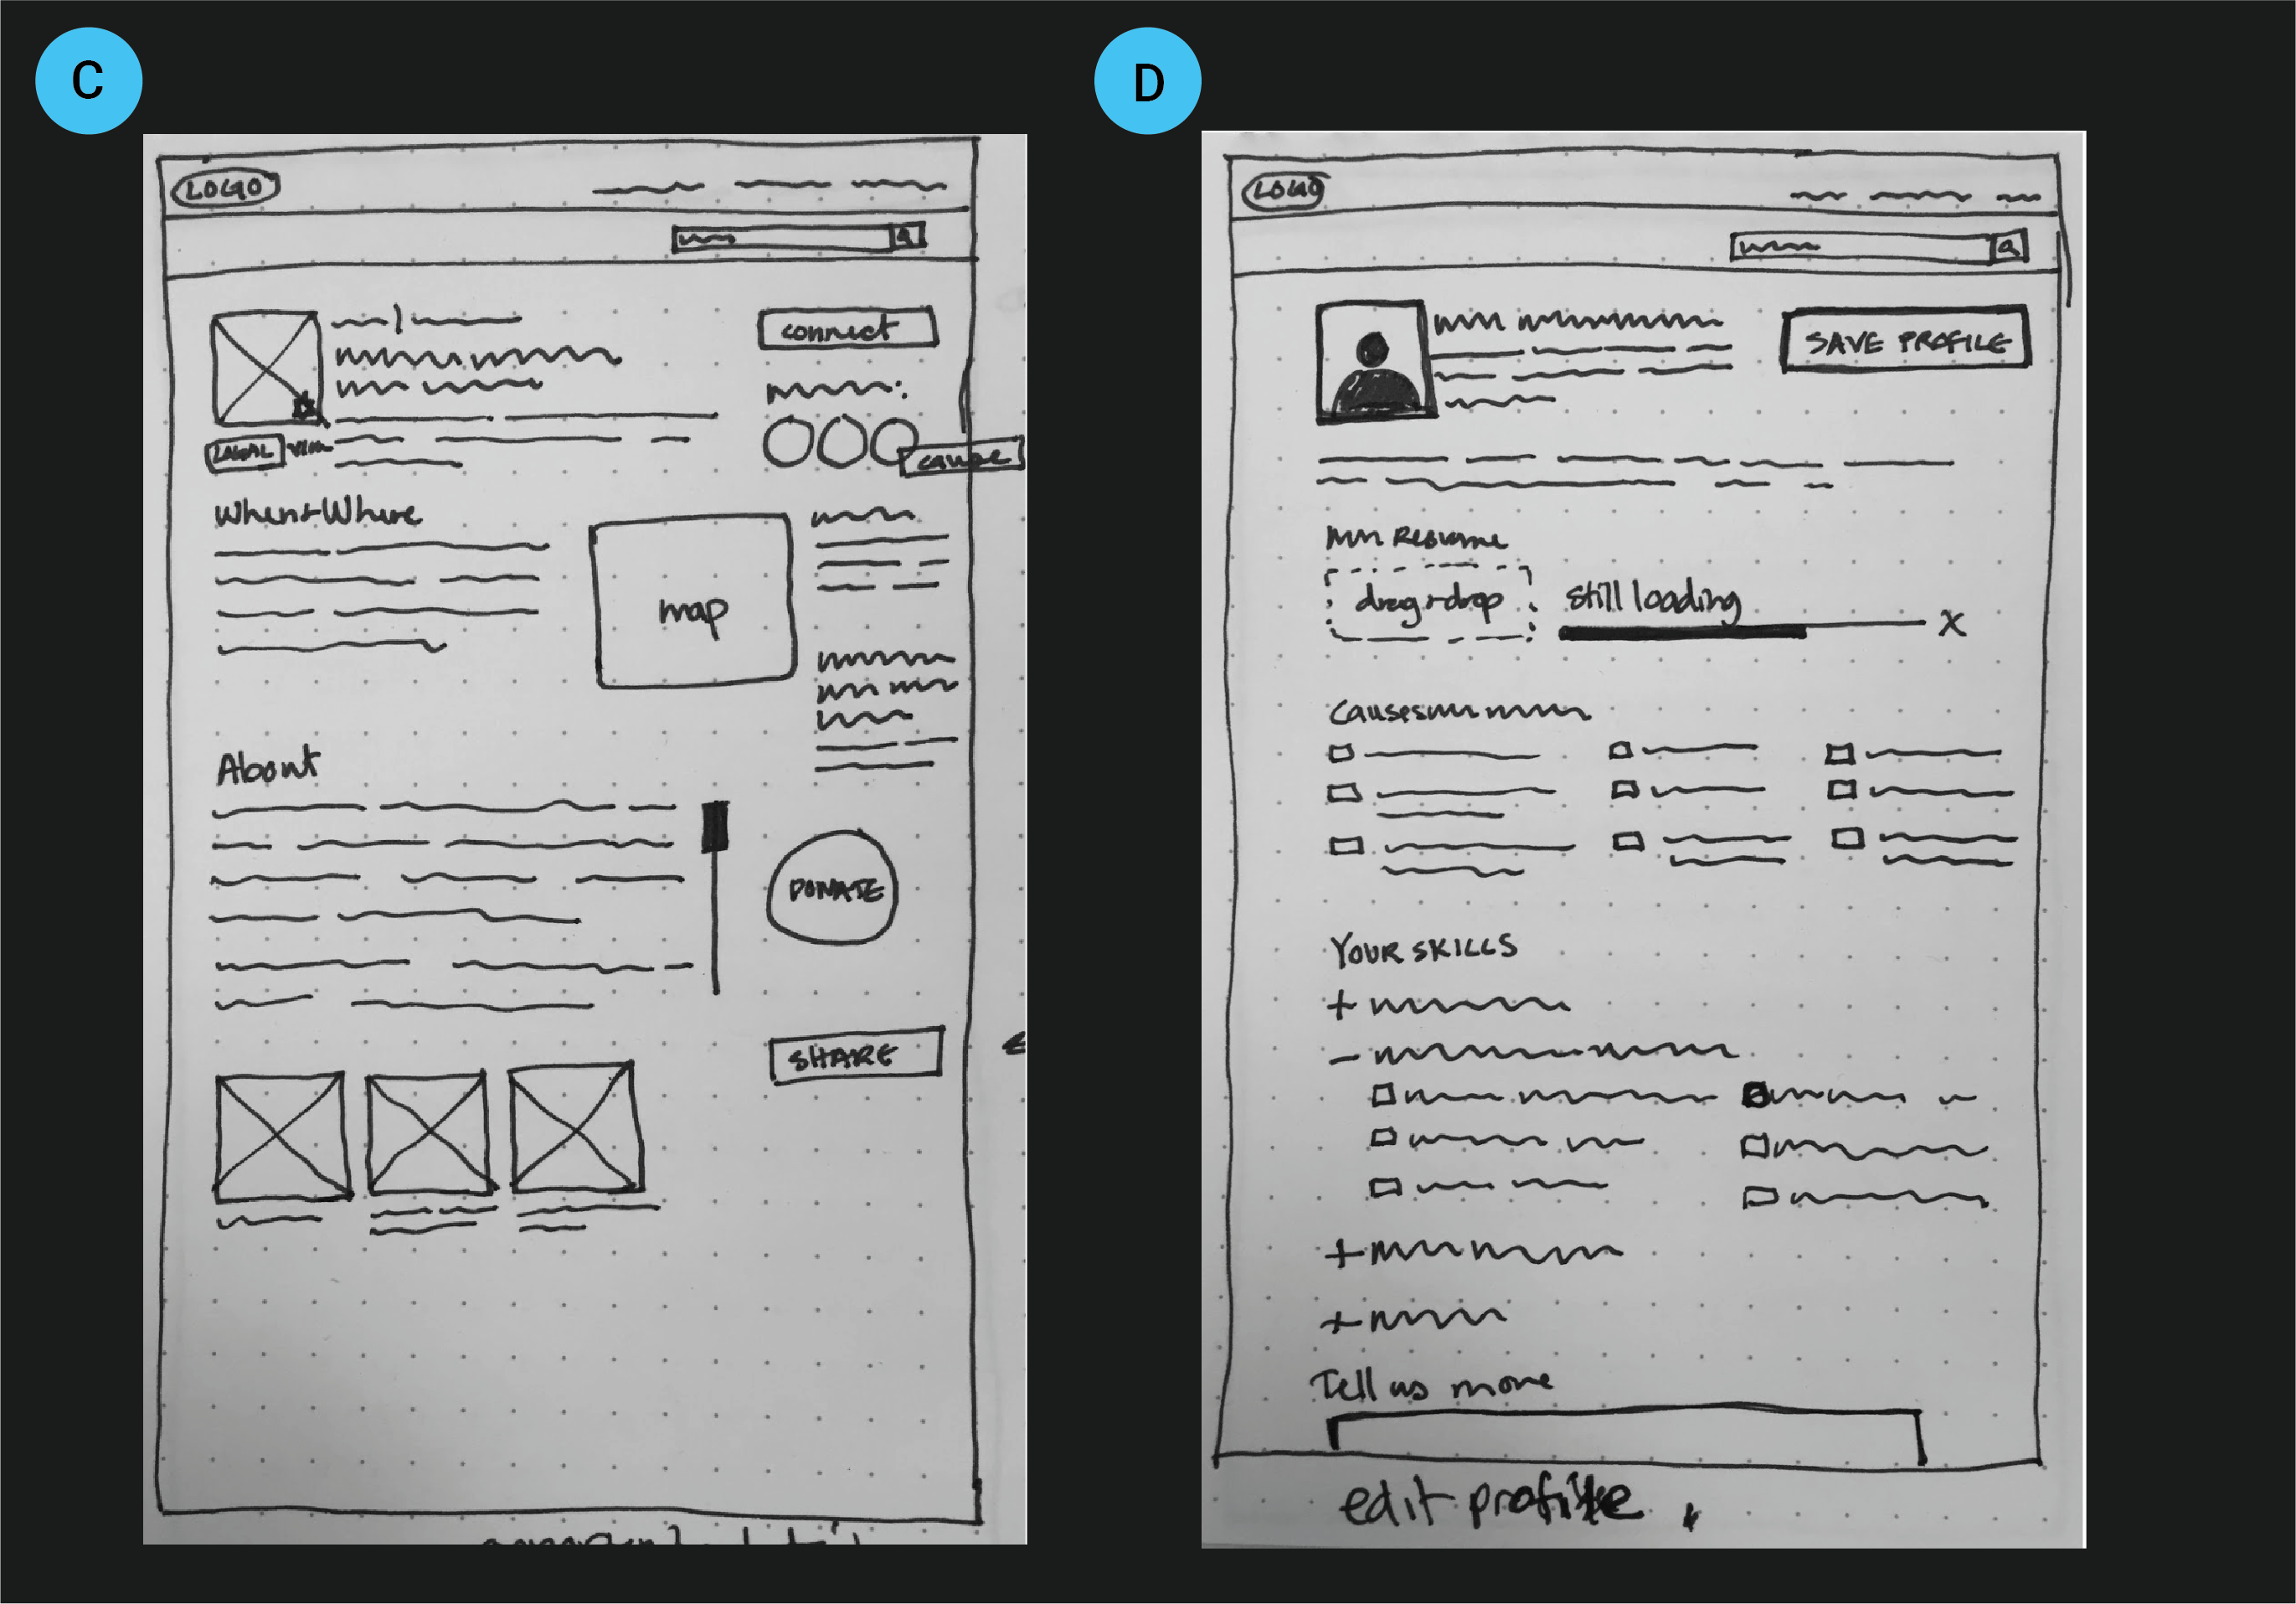 C
LOGO
connect
cause
When + Where
map
About
DONATE
SHARE
D
LOGO
SAVE PROFILE
Resume
drag + drop
still loading
X
Causes
YOUR SKILLS
Tell us more
edit profile